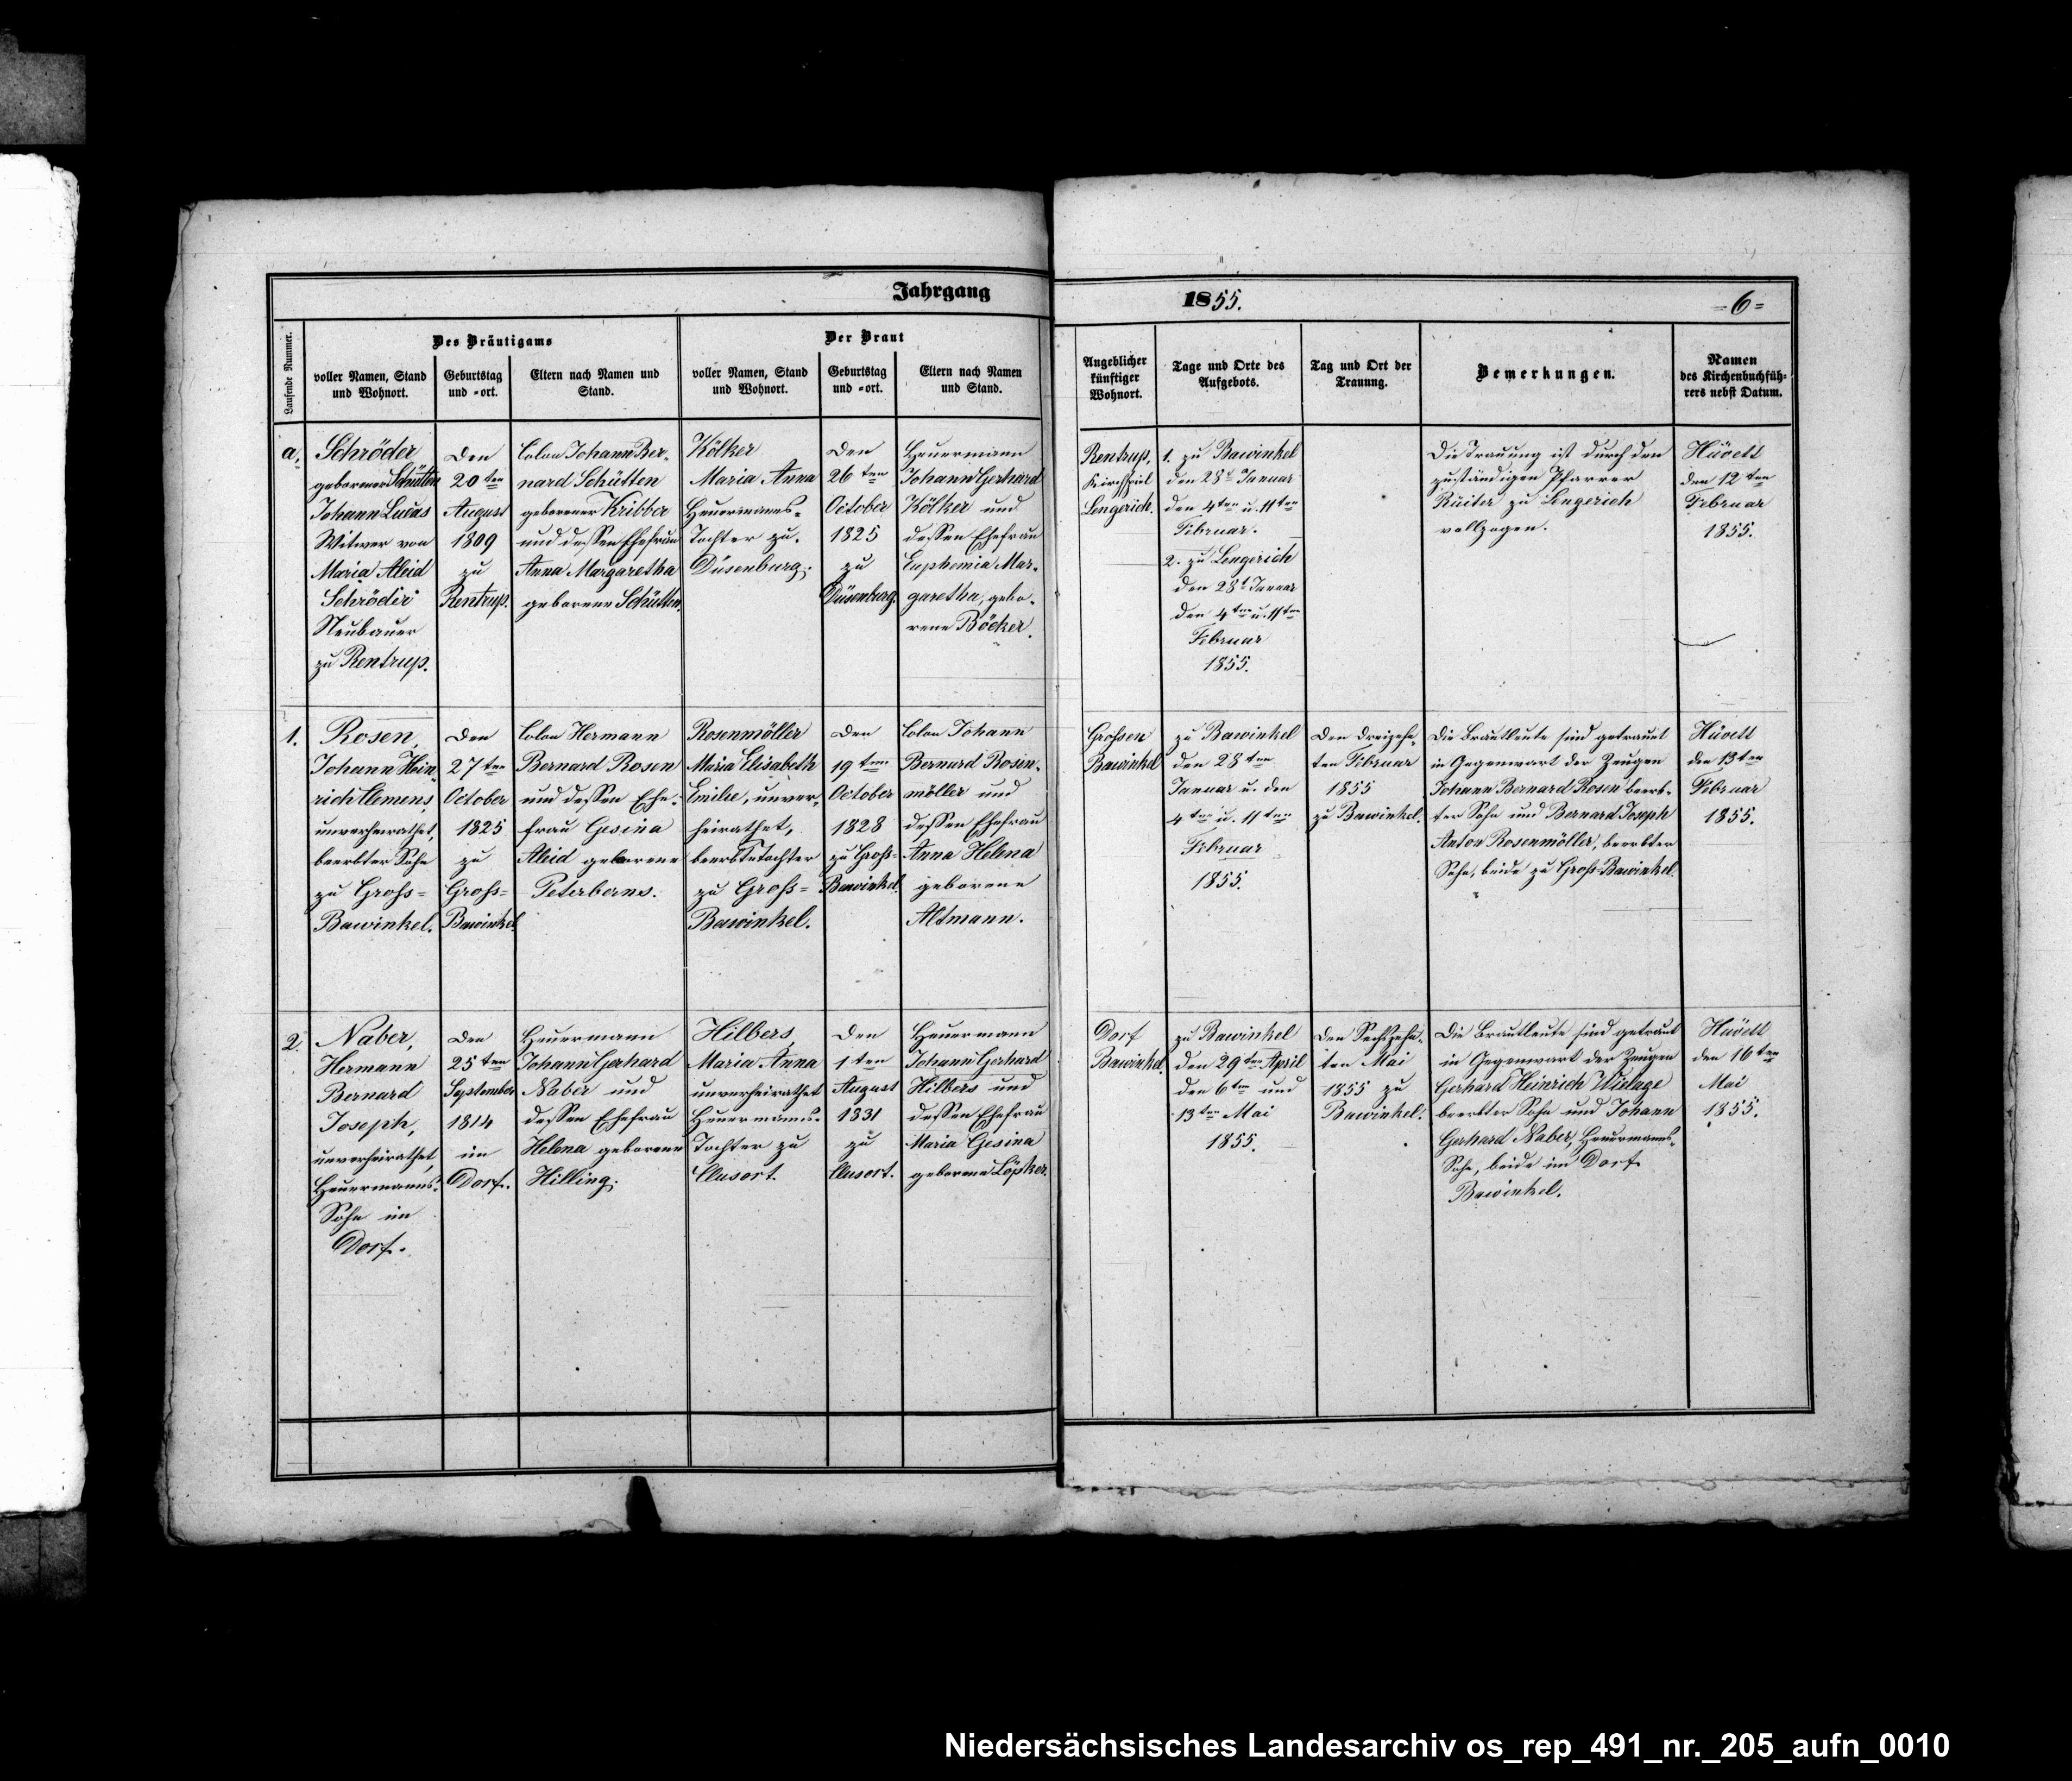 Jahrgang 1855.
=6=
Laufende Nummer.
Des Bräutigams
voller Namen, Stand
und Wohnort.
Geburtstag
und =ort.
Eltern nach Namen und
Stand.
Der Braut
voller Namen, Stand
und Wohnort.
Geburtstag
und =ort.
Eltern nach Namen
und Stand.
Angeblicher
künftiger
Wohnort.
Tage und Orte des
Aufgebots.
Tag und Ort der
Trauung.
Bemerkungen.
Namen
des Kirchenbuchfüh-
rers nebst Datum.
a.
Schröder
geborener Schütten
Johann Lucas
Witwer von
Maria Aleid
Schröder
Neubauer
zu Rentrup.
Den
20ten
August
1809
zu
Rentrup.
Colon Johann Ber-
nard Schütten
geborener Kribber
und dessen Ehefrau
Anna Margaretha
geborene Schütten.
Kölker
Maria Anna
Heuermanns-
Tochter zu
Düsenburg.
Den
26ten
October
1825
zu
Düsenburg.
Heuermann
Johann Gerhard
Kölker und
dessen Ehefrau
Euphemia Mar-
garetha, gebo-
rene Böcker.
Rentrup,
Kirchspiel
Lengerich.
1. zu Bawinkel
den 28t Januar
den 4ten u. 11ten
Februar.
2. zu Lengerich
den 28t Januar
den 4ten u. 11ten
Februar
1855.
Die Trauung ist durch den
zuständigen Pfarrer
Rüiter zu Lengerich
vollzogen.
Hüvett
den 12ten
Februar
1855.
1.
Rosen,
Johann Hein-
rich Clemens,
unverheirathet,
beerbter Sohn
zu Gross=
Bawinkel.
Den
27ten
October
1825
zu
Gross=
Bawinkel.
Colon Hermann
Bernard Rosen
und dessen Ehe-
frau Gesina
Aleid geborene
Peterberns.
Rosenmöller
Maria Elisabeth
Emilie, unver-
heirathet,
beerbte Tochter
zu Gross=
Bawinkel.
Den
19ten
October
1828
zu Gross=
Bawinkel.
Colon Johann
Bernard Rosen-
möller und
dessen Ehefrau
Anna Helena
geborene
Altmann.
Grossen
Bawinkel
zu Bawinkel
den 28ten
Januar u. den
4ten u. 11ten
Februar
1855.
Den dreizehn-
ten Februar
1855
zu Bawinkel.
Die Brautleute sind getrauet
in Gegenwart der Zeugen
Johann Bernard Rosen beerb-
ter Sohn und Bernard Joseph
Anton Rosenmöller, beerbter
Sohn, beide zu Gross-Bawinkel.
Hüvett
den 13ten
Februar
1855.
2.
Naber,
Hermann
Bernard
Joseph,
unverheirathet,
Heuermanns-
Sohn im
Dorf.
Den
25ten
September
1814
im
Dorf.
Heuermann
Johann Gerhard
Naber und
dessen Ehefrau
Helena geborene
Hilling.
Hilbers,
Maria Anna
unverheirathet
Heuermanns-
Tochter zu
Clusort.
Den
1ten
August
1831
zu
Clusort.
Heuermann
Johann Gerhard
Hilbers und
dessen Ehefrau
Maria Gesina
geborene Löpker.
Dorf
Bawinkel.
zu Bawinkel
den 29ten April
den 6ten und
13ten Mai
1855.
Den Sechszehn-
ten Mai
1855 zu
Bawinkel.
Die Brautleute sind getraut
in Gegenwart der Zeugen
Gerhard Heinrich Wielage
beerbter Sohn und Johann
Gerhard Naber, Heuermanns-
Sohn, beide im Dorf
Bawinkel.
Hüvett
den 16ten
Mai
1855.
Niedersächsisches Landesarchiv os_rep_491_nr._205_aufn_0010